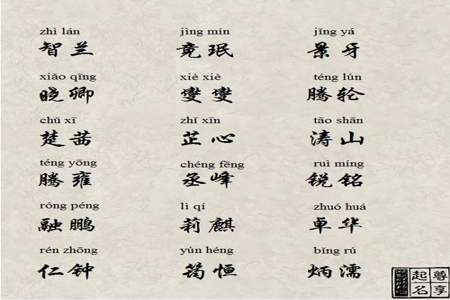 zhì lán jìng mín jǐng yá
智兰 竟珉 景牙
xiǎo qīng xiè xiè téng lún
晓卿 燮燮 腾轮
chǔ xī zhǐ xīn tāo shān
楚茜 芷心 涛山
téng yōng chéng fēng ruì míng
腾雍 丞峰 锐铭
róng péng lì qí zhuó huá
融鹏 莉麒 卓华
rén zhōng yún héng bǐng rú
仁钟 筠恒 炳濡
尊享
起名